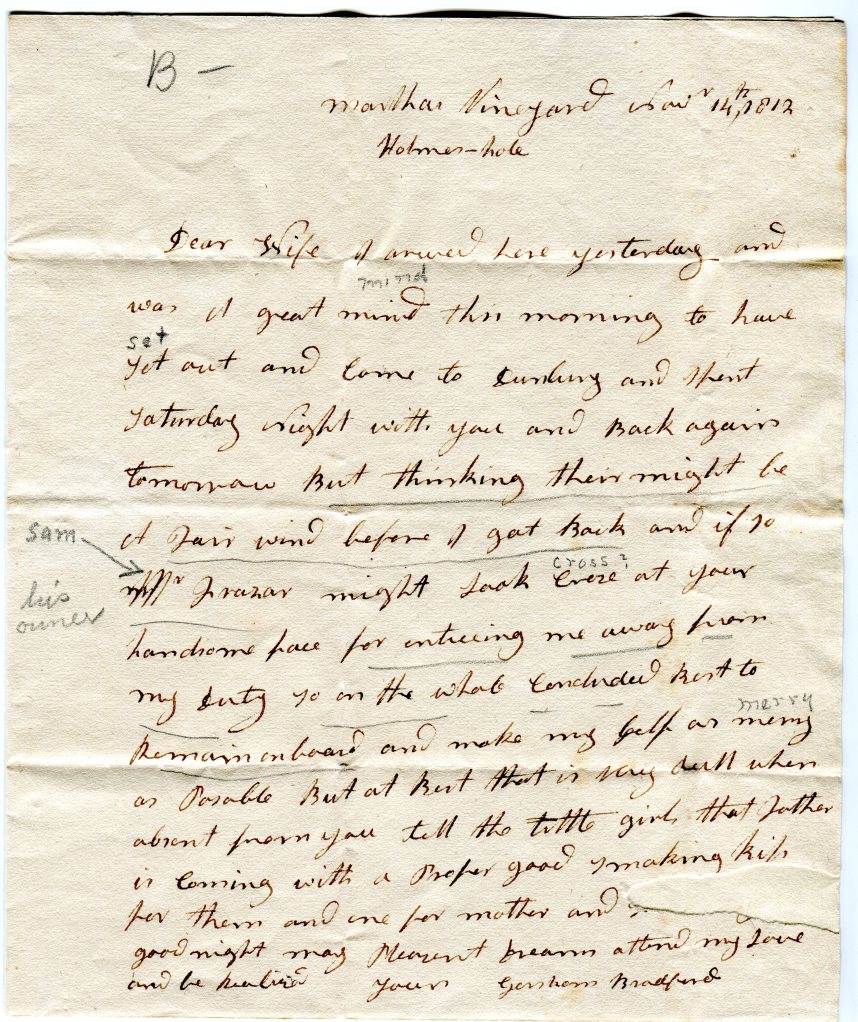 B –
marthas Vineyard Novr 14th, 1812
Holmes-hole
Dear Wife I arived here yesterday and
mind
was A great mind this morning to have
set
set out and Come to Duxbury and spent
saturday Night with you and Back again
tomorrow But thinking their might be
A Fair wind before I got Back and if so
sam
cross?
Mr Frazar might Look Croze at your
his
owner
handsome face for enticeing me away from
my Duty so on the whole Concluded Best to
merry
Remain on board and make my self as merry
as Posable But at Best that is very dull when
absent from you tell the little girls that Father
is Coming with a Proper good smaking kiss
for them and one for mother and
good night may Pleasent Dreams attend my Love
and be Realized yours Gersham Bradford